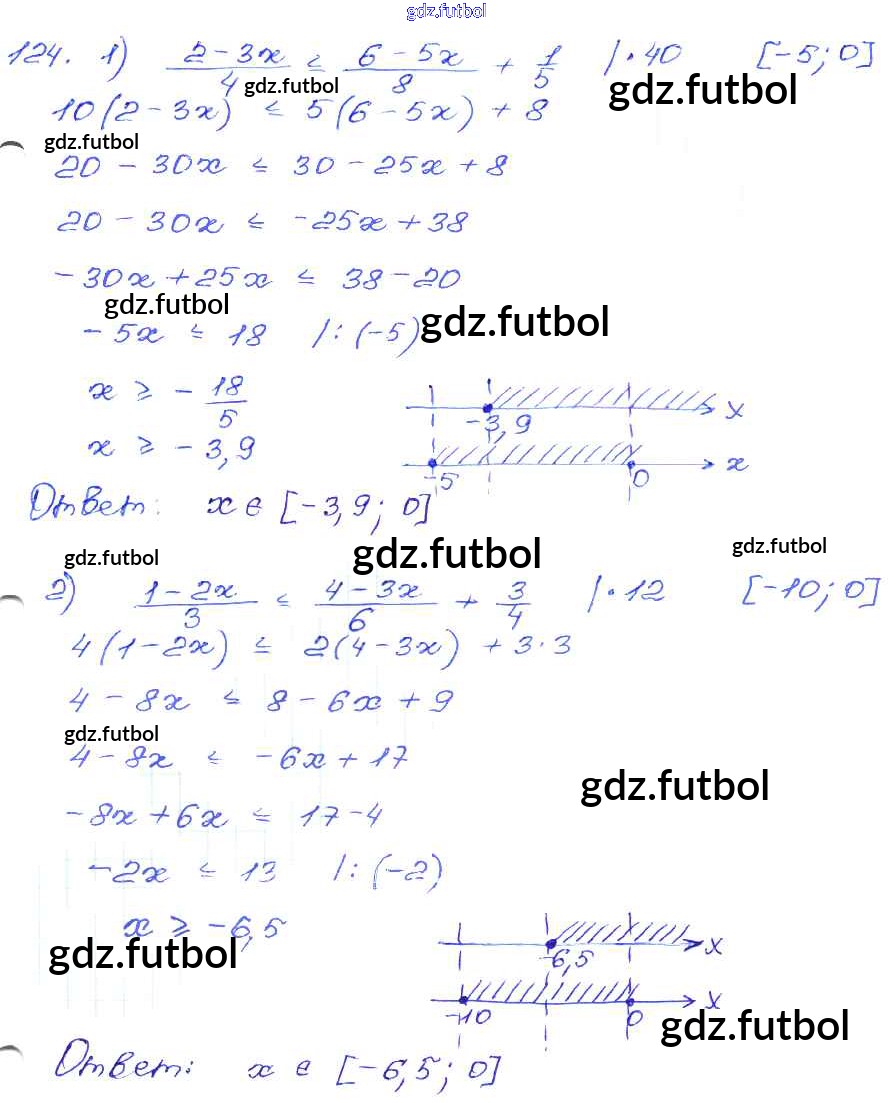 gdz.futbol
124. 1) (2 - 3x)/4 ≤ (6 - 5x)/8 + 1/5 |·40 [-5; 0]
gdz.futbol gdz.futbol
10(2 - 3x) ≤ 5(6 - 5x) + 8
gdz.futbol
20 - 30x ≤ 30 - 25x + 8
20 - 30x ≤ -25x + 38
-30x + 25x ≤ 38 - 20
gdz.futbol gdz.futbol
-5x ≤ 18 |:(-5)
x ≥ - 18/5
-3,9 x
x ≥ -3,9
-5 0 x
Ответ: x ∈ [-3,9; 0]
gdz.futbol gdz.futbol gdz.futbol
2) (1 - 2x)/3 ≤ (4 - 3x)/6 + 3/4 |·12 [-10; 0]
4(1 - 2x) ≤ 2(4 - 3x) + 3·3
4 - 8x ≤ 8 - 6x + 9
gdz.futbol
4 - 8x ≤ -6x + 17
gdz.futbol
-8x + 6x ≤ 17 - 4
-2x ≤ 13 |:(-2)
x ≥ -6,5
gdz.futbol
-6,5 x
-10 0 x
gdz.futbol
Ответ: x ∈ [-6,5; 0]